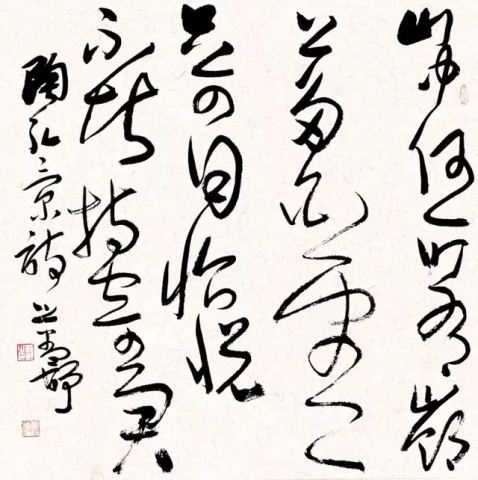 山中何所有嶺
上多白雲
只可自怡悦
不堪持寄君
陶弘景詩